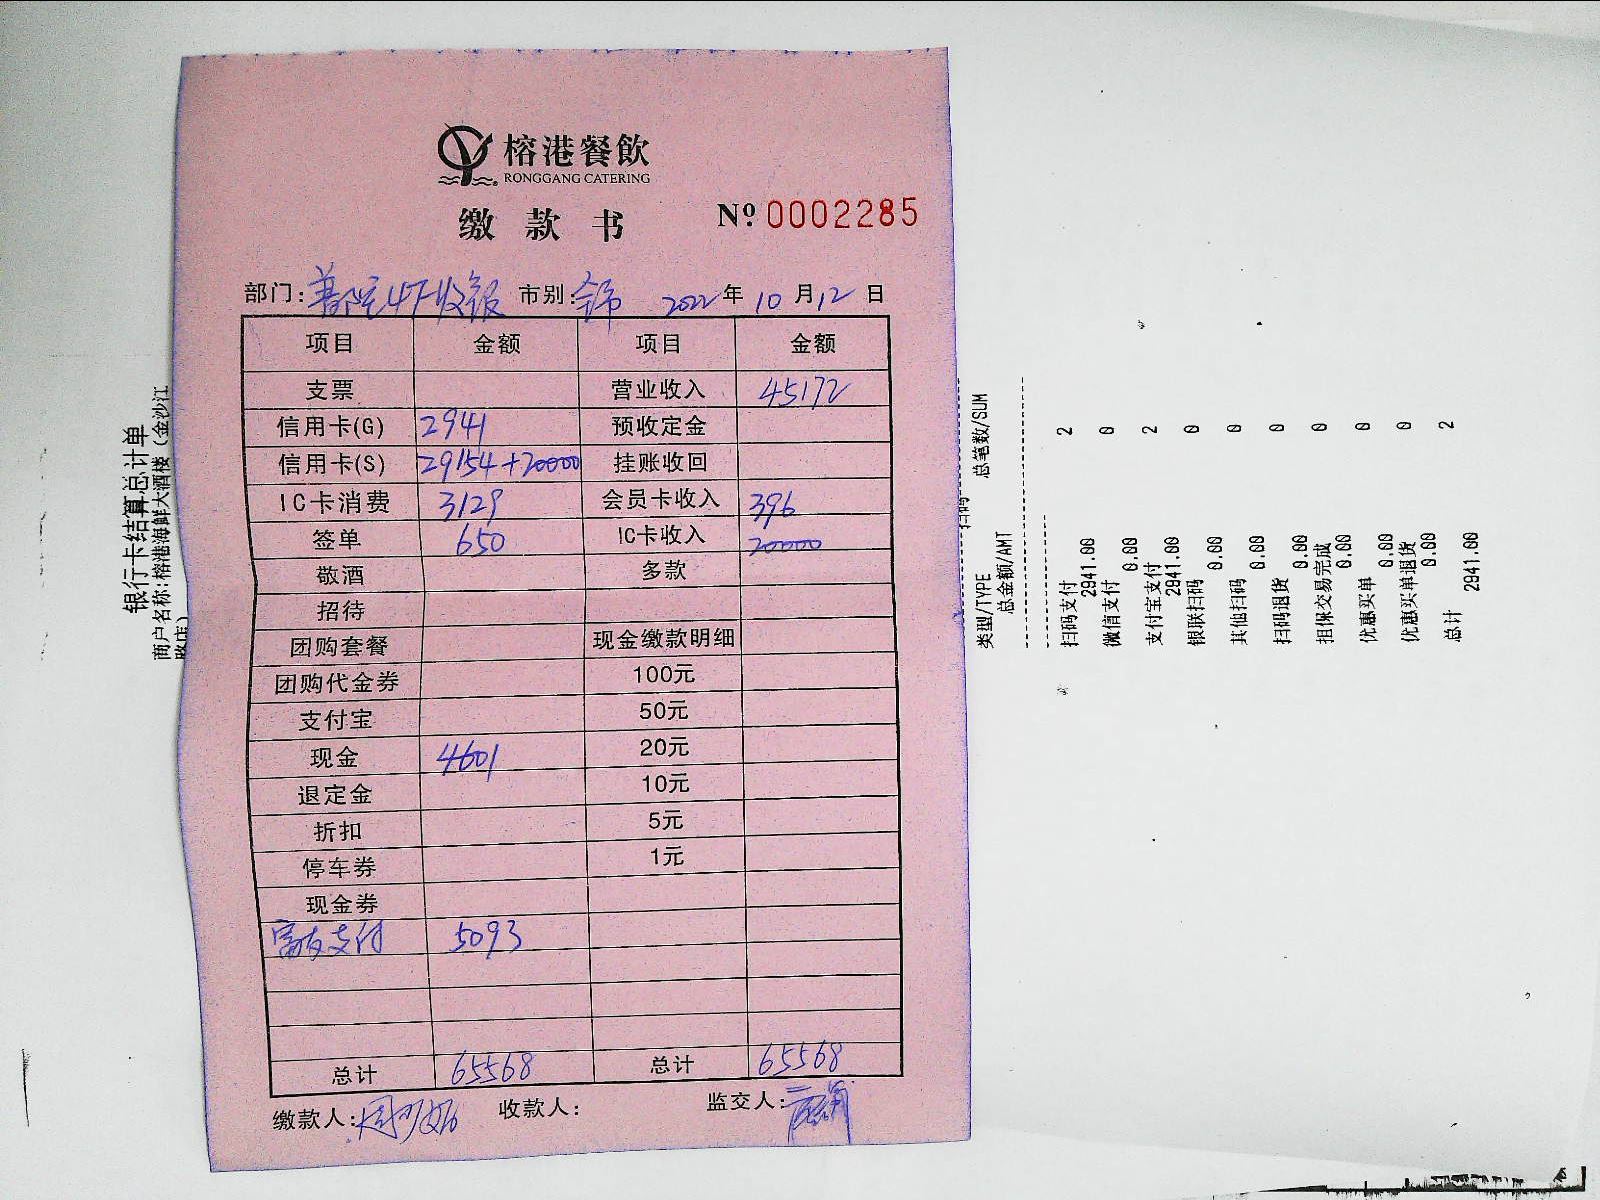 榕港餐飲
RONGGANG CATERING
缴款书 Nº 0002285
部门: 4F收银 市别: 2022年10月12日
项目 金额 项目 金额
支票 营业收入 45172
信用卡(G) 2941 预收定金
信用卡(S) 29154+20000 挂账收回
IC卡消费 3129 会员卡收入 396
签单 650 IC卡收入 20000
敬酒 多款
招待
团购套餐 现金缴款明细
团购代金券 100元
支付宝 50元
现金 4601 20元
退定金 10元
折扣 5元
停车券 1元
现金券
富友支付 5093
总计 65568 总计 65568
缴款人: 收款人: 监交人:
银行卡结算总计单
商户名称:榕港海鲜大酒楼（金沙江
路店）
扫码
类型/TYPE 总笔数/SUM
总金额/AMT
扫码支付 2
2941.00
微信支付 0
0.00
支付宝支付 2
2941.00
银联扫码 0
0.00
其他扫码 0
0.00
扫码退货 0
0.00
担保交易完成 0
0.00
优惠买单 0
0.00
优惠买单退货 0
0.00
总计 2
2941.00